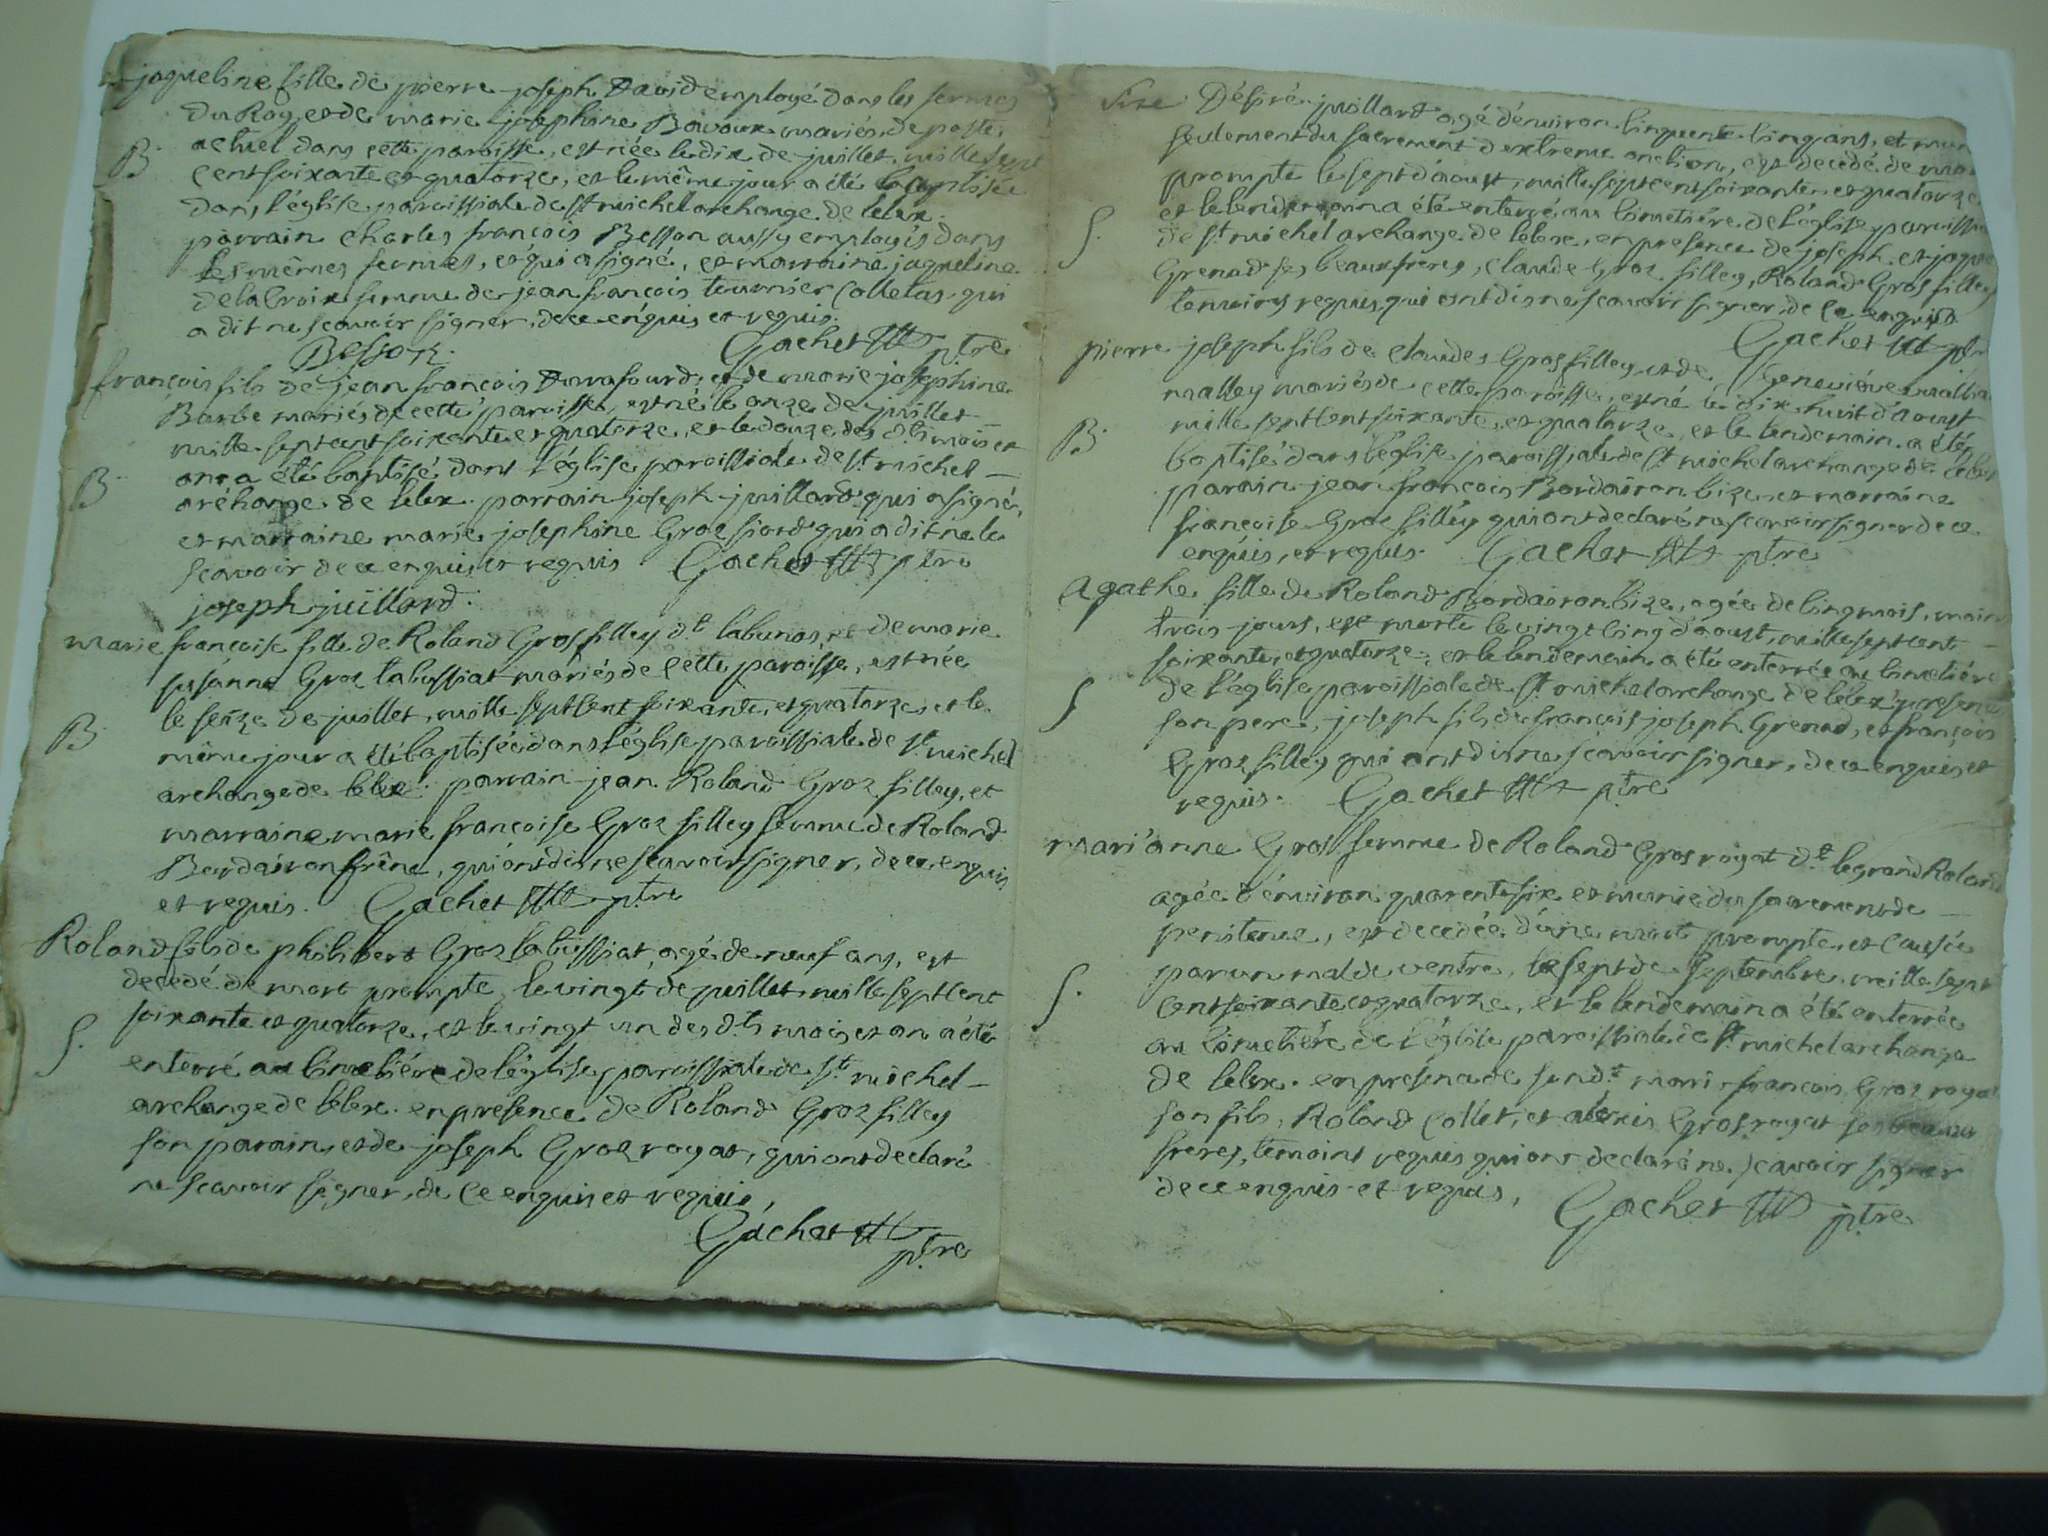 jaqueline fille de pierre joseph David employé dans les fermes
du Roy, et de marie josephine Bavoux mariés de poste
B. actuel dans cette paroisse, est née le dix de juillet mille sept
cent soixante et quatorze, et le même jour a été baptisée
dans l'église paroissiale de st michel archange de lélex.
parrain charles françois Besson aussy employés dans
les mêmes fermes, et qui a signé, et marraine jaqueline
delacroix femme de jean françois tournier Colletas qui
a dit ne scavoir signer, de ce enquis et requis.
Besson. Gachet ptre
françois fils de jean françois et de marie josephine
Barbe mariés de cette paroisse, est né le onze de juillet
mille sept cent soixante et quatorze, et le douze des dts mois et
B. an a été baptisé dans l'église paroissiale de st michel
archange de lélex. parrain joseph juillard qui a signé,
et marraine marie josephine Groz fiord qui a dit ne le
scavoir de ce enquis et requis Gachet ptre
joseph juillard.
marie françoise fille de Roland Grosfilley dt labunas, et de marie
susanne Groz labussiat mariés de cette paroisse, est née
le seize de juillet, mille sept cent soixante, et quatorze, et le
B. même jour a été baptisée dans l'église paroissiale de st michel
archange de lélex. parrain jean Roland Groz filley, et
marraine marie françoise Groz filley femme de Roland
Bordairon frêne, qui ont dit ne scavoir signer, de ce enquis
et requis. Gachet ptre
Roland fils de philibert Groz labussiat, agé de neuf ans, est
decedé de mort prompte le vingt de juillet mille sept cent
soixante et quatorze, et le vingt un des dts mois et an a été
S. enterré au cimetiére de l'église paroissiale de st michel
archange de lélex. en presence de Roland Groz filley
son parain, et de joseph Groz royat, qui ont declaré
ne scavoir signer, de ce enquis et requis,
Gachet
ptre
Désiré juillard agé d'environ cinquante cinq ans, et muni
seulement du sacrement d'extreme onction, est decedé de mort
prompte le sept d'aoust, mille sept cent soixante et quatorze
et le lendemain a été enterré au cimetiére de l'église paroissia
S. de st michel archange de lélex, en presence de joseph et jaque
Grenad ses beauxfrères, claude Groz filley, Roland Gros filley
temoins requis, qui ont dis ne scavoir signer, de ce enquis
Gachet ptr
pierre joseph fils de claudes Grosfilley, et de Geneviéve
malley mariés de cette paroisse, est né le dix huit d'aoust
mille sept cent soixante, et quatorze, et le lendemain a été
B. baptisé dans l'église paroissiale de st michel archange de lélex
parain jean françois Bordairon bize, et marraine
françoise Groz filley qui ont declaré ne scavoir signer de ce
enquis, et requis. Gachet ptre
Agathe fille de Roland Bordaironbize, agée de cinq mois, moins
trois jours, est morte le vingt cinq d'aoust, mille sept cent
soixante, et quatorze, et le lendemain a été enterrée au cimetiére
S de l'église paroissiale de st michel archange de lélex presens
son pere, joseph fils de françois joseph Grenad, et françois
Groz filley qui ont dis ne scavoir signer, de ce enquis et
requis. Gachet ptre
mari'anne Gros femme de Roland Gros royat dt legrand Roland
agée d'environ quarente six et munie du sacrement de
penitence, est decedée d'une mort prompte, et causée
par un mal de ventre, le sept de septembre mille sept
S. cent soixante et quatorze, et le lendemain a été enterrée
au cimetiére de l'église paroissiale de st michel archange
de lélex. en presence de sondt mari françois Groz royat
son fils, Roland Collet, et alexis Grosroyat ses beaux
freres, temoins requis qui ont declaré ne scavoir signer
de ce enquis et requis, Gachet ptre